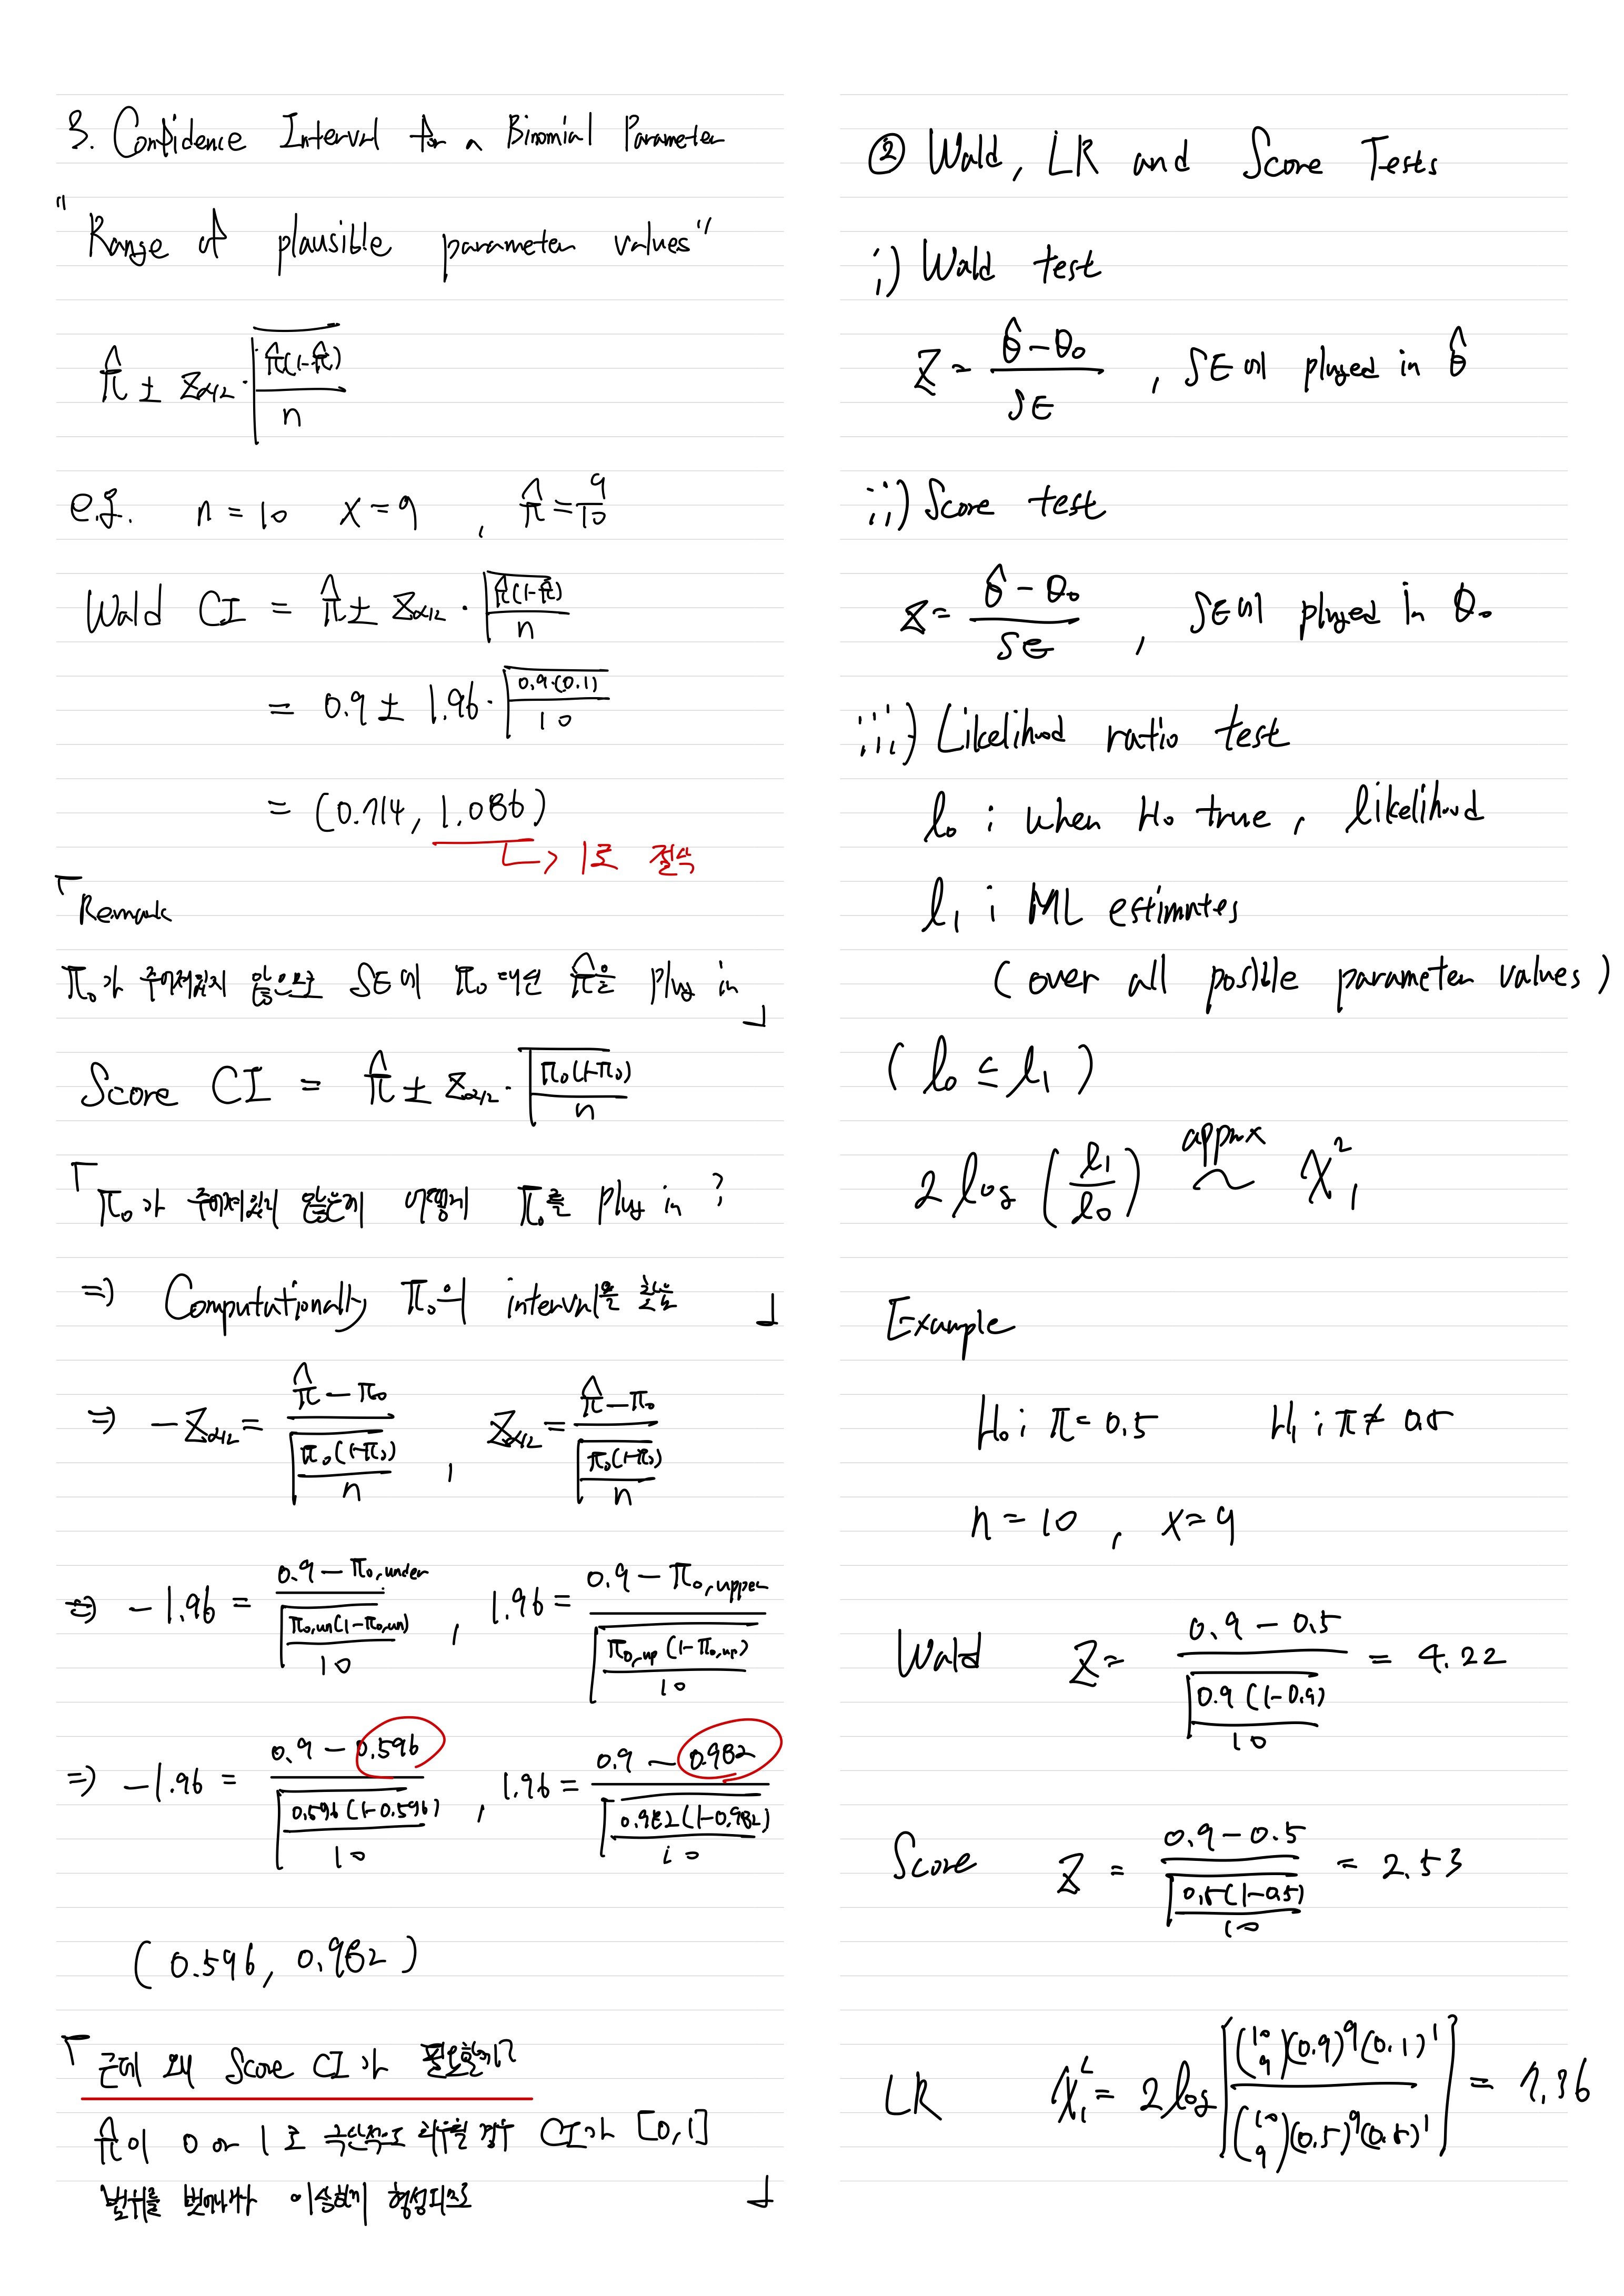 3. Confidence Interval for a Binomial Parameter
"Range of plausible parameter values"
π̂ ± z_{α/2} · √(π̂(1-π̂)/n)
e.g. n = 10 x = 9 , π̂ = 9/10
Wald CI = π̂ ± z_{α/2} · √(π̂(1-π̂)/n)
= 0.9 ± 1.96 · √(0.9·(0.1)/10)
= (0.714, 1.086)
↳ 1로 절삭
「Remark
π₀가 주어져있지 않으므로 SE에 π₀ 대신 π̂을 plug in 」
Score CI = π̂ ± z_{α/2} · √(π₀(1-π₀)/n)
「π₀가 주어져있지 않은데 어떻게 π₀를 plug in ?
⇒ Computationally π₀의 interval을 찾음 」
⇒ -z_{α/2} = (π̂ - π₀)/√(π₀(1-π₀)/n) , z_{α/2} = (π̂ - π₀)/√(π₀(1-π₀)/n)
⇒ -1.96 = (0.9 - π₀,under)/√(π₀,un(1-π₀,un)/10) , 1.96 = (0.9 - π₀,upper)/√(π₀,up(1-π₀,up)/10)
⇒ -1.96 = (0.9 - 0.596)/√(0.596(1-0.596)/10) , 1.96 = (0.9 - 0.982)/√(0.982(1-0.982)/10)
(0.596, 0.982)
「근데 왜 Score CI가 필요할까?
π̂이 0 or 1로 극단적으로 치우칠 경우 CI가 [0,1]
범위를 벗어나거나 이상하게 형성되므로 」
② Wald, LR and Score Tests
i) Wald test
Z = (θ̂ - θ₀)/SE , SE에 plugged in θ̂
ii) Score test
Z = (θ̂ - θ₀)/SE , SE에 plugged in θ₀
iii) Likelihood ratio test
l₀ : when H₀ true, likelihood
l₁ : ML estimates
(over all possible parameter values)
(l₀ ≤ l₁)
2 log (l₁/l₀) approx ~ χ²₁
Example
H₀ : π = 0.5 H₁ : π ≠ 0.5
n = 10 , x = 9
Wald Z = (0.9 - 0.5)/√(0.9(1-0.9)/10) = 4.22
Score Z = (0.9 - 0.5)/√(0.5(1-0.5)/10) = 2.53
LR χ²₁ = 2 log[(10 9)(0.9)⁹(0.1)¹ / (10 9)(0.5)⁹(0.5)¹] = 7.36